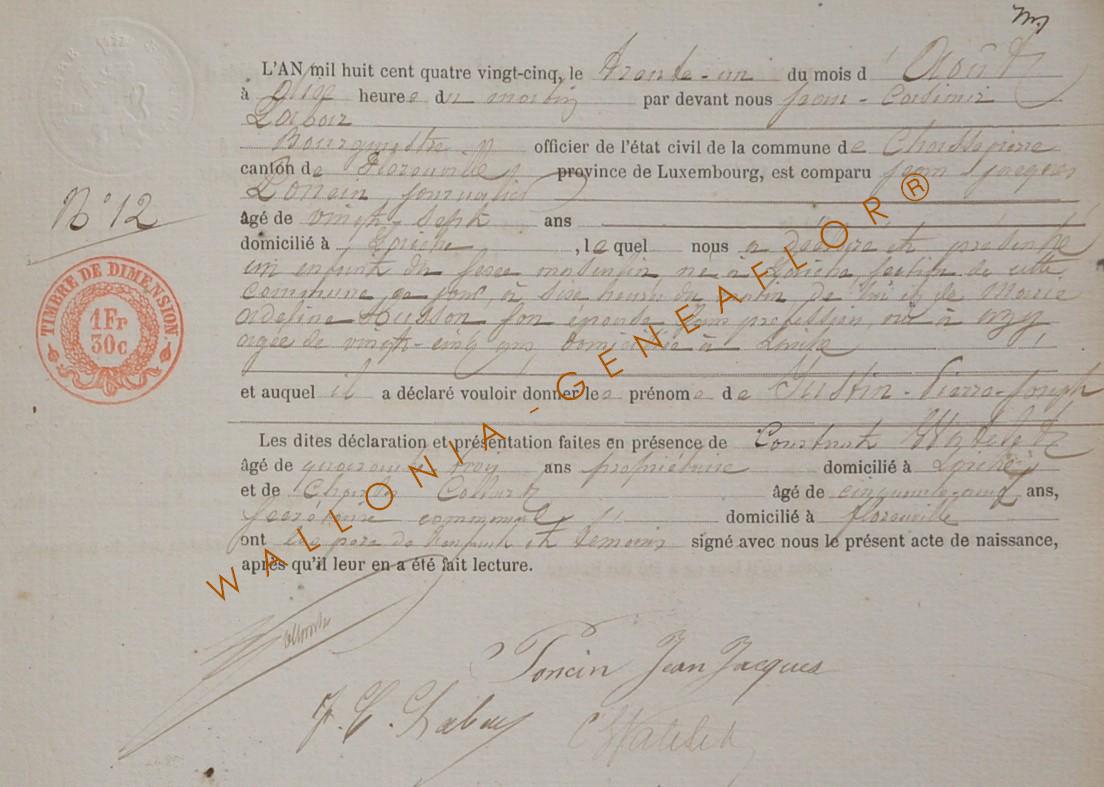 L'AN mil huit cent quatre vingt-cinq, le trente-un du mois d'Août
à onze heures du matin par devant nous Jean-Casimir
Labour
Bourgmestre officier de l'état civil de la commune de Chassepierre
canton de Florenville province de Luxembourg, est comparu Jean Jacques
âgé de vingt-sept ans
N° 12
domicilié à Laiche, lequel nous a déclaré et présenté
un enfant du sexe masculin, né à Laiche section de cette
commune ce jour, à six heures du matin de lui et de Marie
Husson son épouse sans profession, née à Izy
agée de vingt-cinq ans, domiciliée à Laiche
TIMBRE DE DIMENSION.
1Fr
30c
et auquel il a déclaré vouloir donner les prénoms de Justin-Pierre-Joseph
Les dites déclaration et présentation faites en présence de Constant Watelet
âgé de quarante trois ans propriétaire domicilié à Laiche
et de Charles Collart âgé de cinquante cinq ans,
secrétaire communal domicilié à Florenville
ont les père de l'enfant et témoins signé avec nous le présent acte de naissance,
après qu'il leur en a été fait lecture.
WALLONIA-GENEAFLOR®
Jean Jacques
J. C. Labour
C Watelet